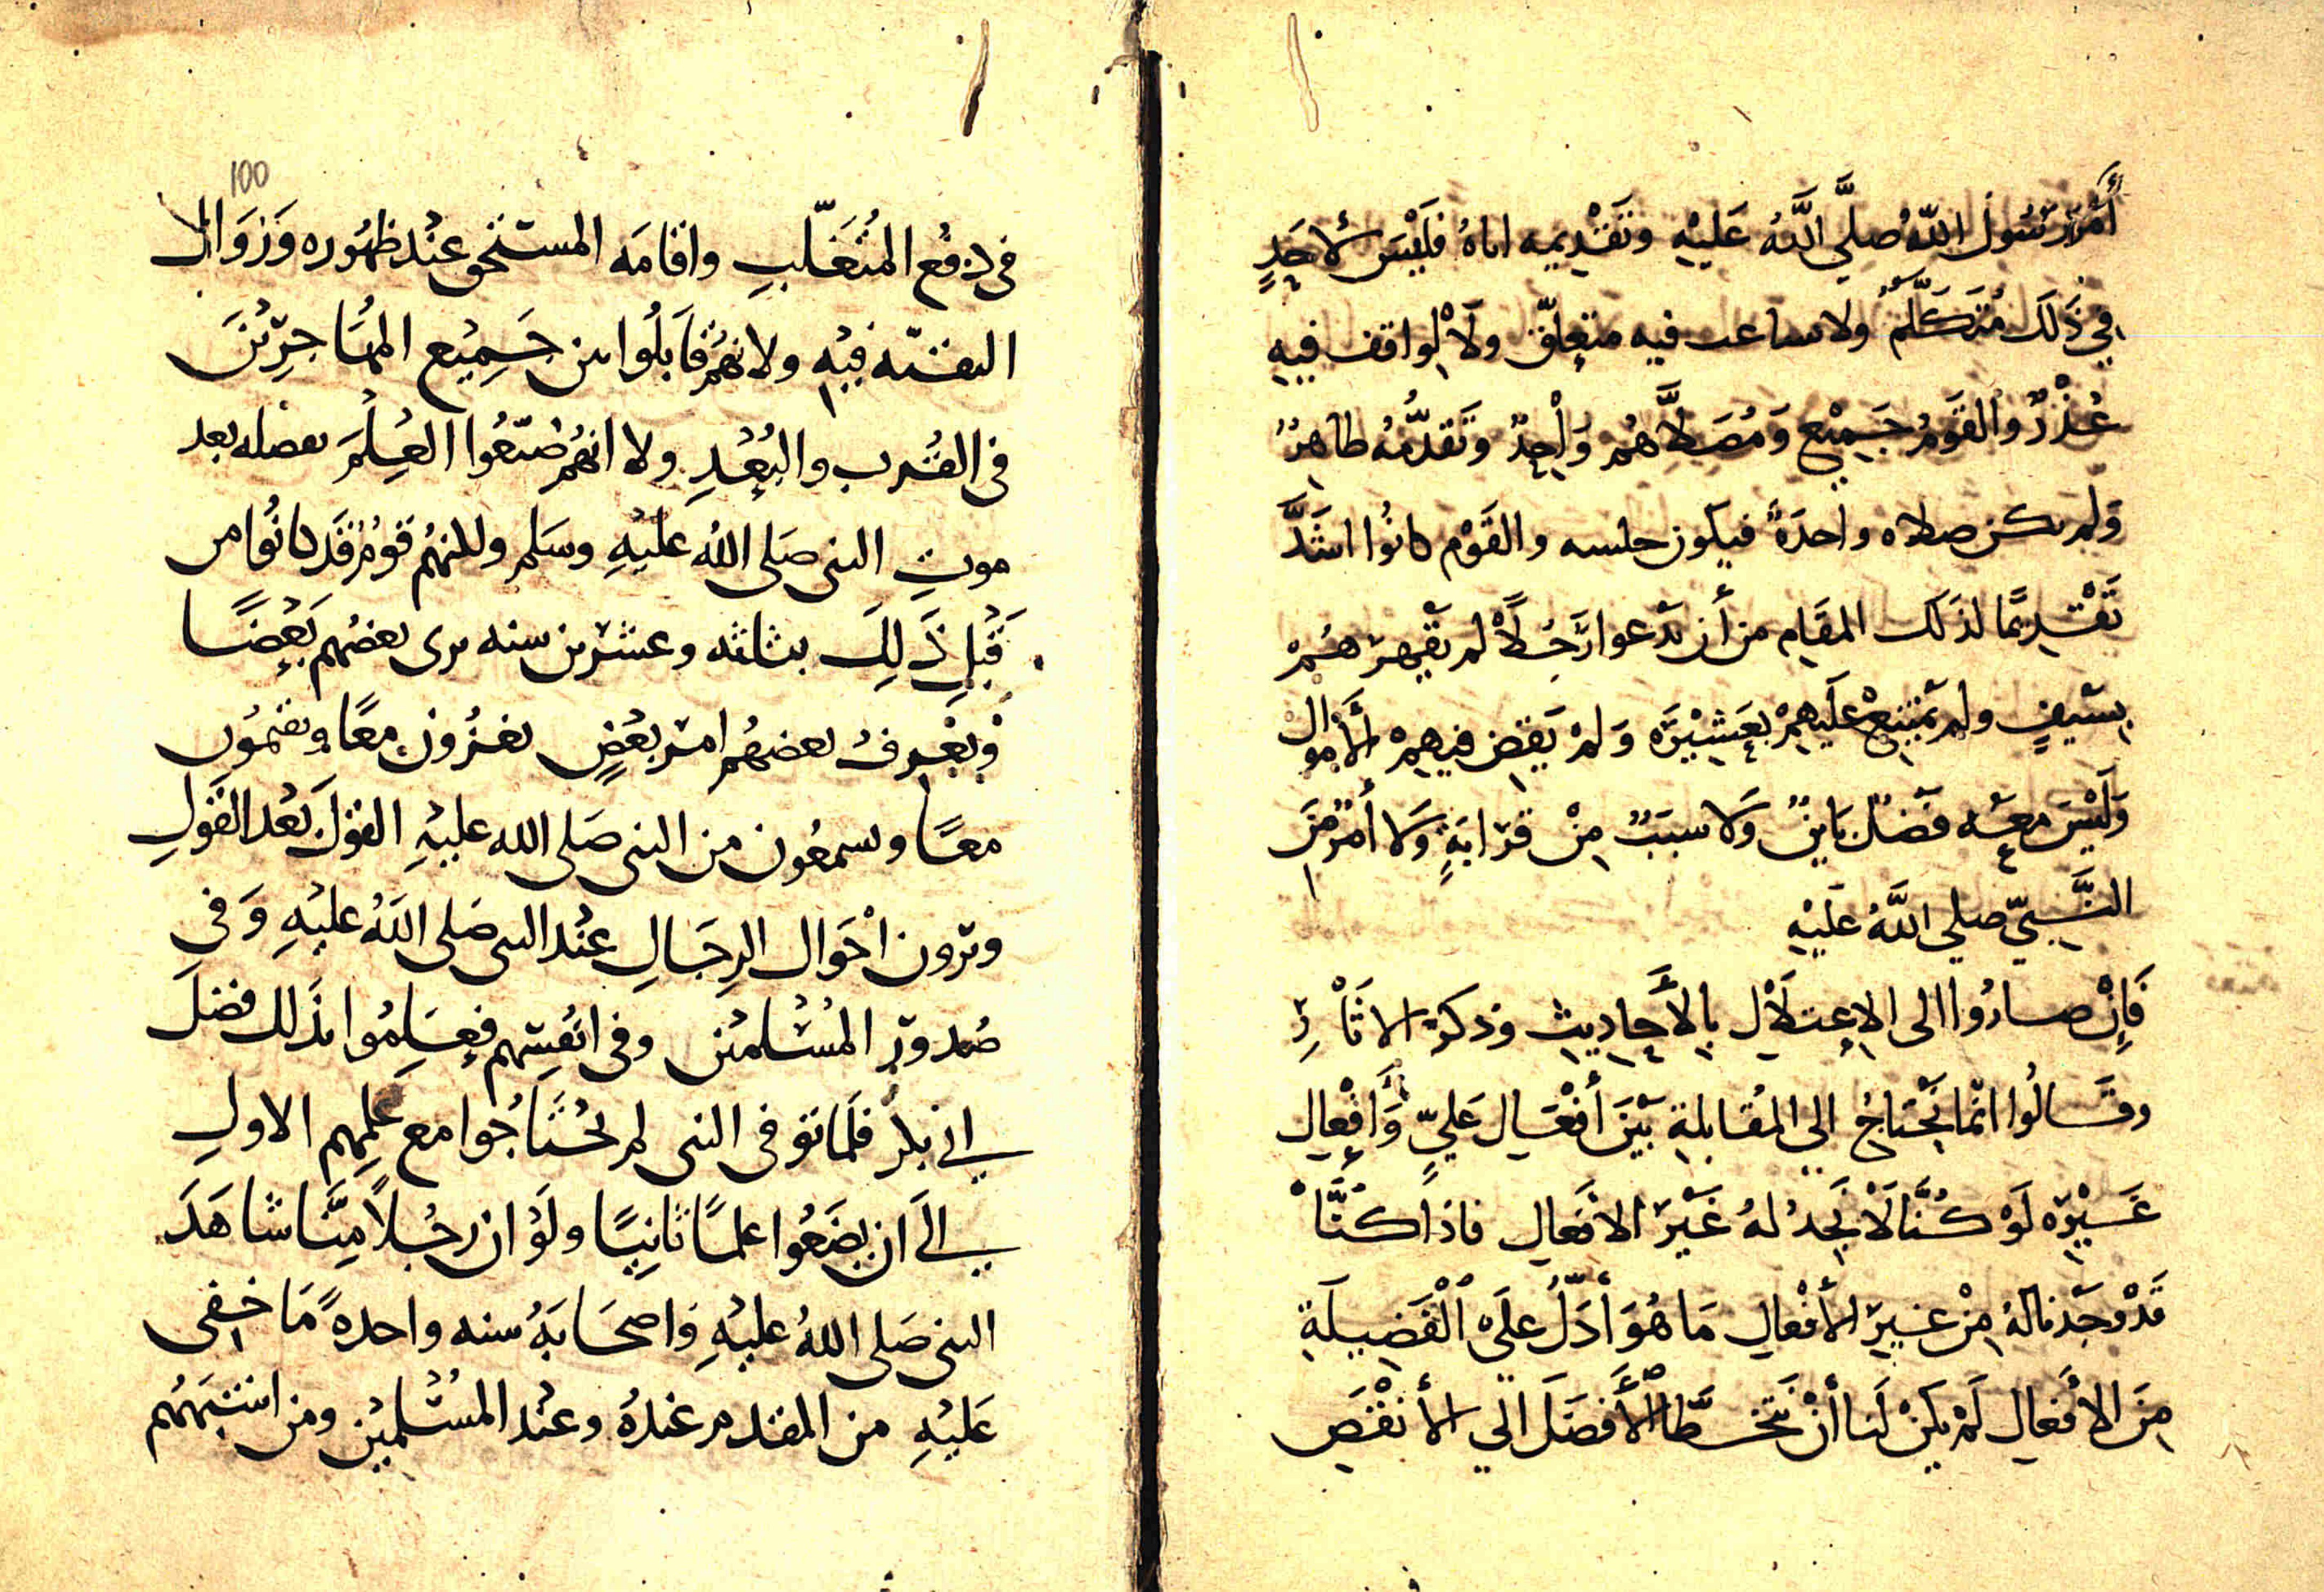 أمر رسول الله صلى الله عليه وتقديمه اياه فليس لأحد
في ذلك متكلم ولا ساعب فيه متعلق ولا لواقف فيه
عذر والقوم جميع ومصلاهم واحد وتقدمه ظاهر
ولم يكن صلاه واحدة فيكون خلسه والقوم كانوا اشد
تقديما لذلك المقام من أن يدعوا رجلا لم يقهرهم
بسيف ولم يمتنع عليهم بعشيره ولم يقض فيهم الأموال
وليس معه فضل باين ولا سبب من قرابة ولا أمر من
النبي صلي الله عليه
فإن صاروا الى الاعتلال بالأحاديث وذكر الاثار
وقالوا انما نحتاج الي المقابلة بين أفعال علي وأفعال
غيره لو كنا لا نجد له غير الافعال فاذا كنا
قد وجدنا له من غير الأفعال ما هو أدل على الفضيلة
من الأفعال لم يكن لنا أن نتخطا الأفضل الي الأنقص
100
في دفع المتغلب واقامه المستحق عند ظهوره وزوال
التقيه فيه ولانهم قابلوا بين جميع المهاجرين
في القرب والبعد ولا انهم ضيعوا العلم بفضله بعد
موت النبي صلى الله عليه وسلم ولكنهم قوم قد كانوا من
قبل ذلك بثلثه وعشرين سنه يرى بعضهم بعضا
ويعرف بعضهم امر بعض يغزون معا ويغنمون
معا ويسمعون من النبي صلى الله عليه القول بعد القول
ويرون احوال الرجال عند النبي صلى الله عليه وفي
صدور المسلمين وفي انفسهم فعلموا بذلك فضل
ابي بكر فلما توفي النبي لم يحتاجوا مع علمهم الاول
الى ان يضعوا علما ثانيا ولو ان رجلا منا شاهد
النبي صلى الله عليه واصحابه سنه واحدة ما خفى
عليه من المقدم عنده وعند المسلمين ومن اشبههم